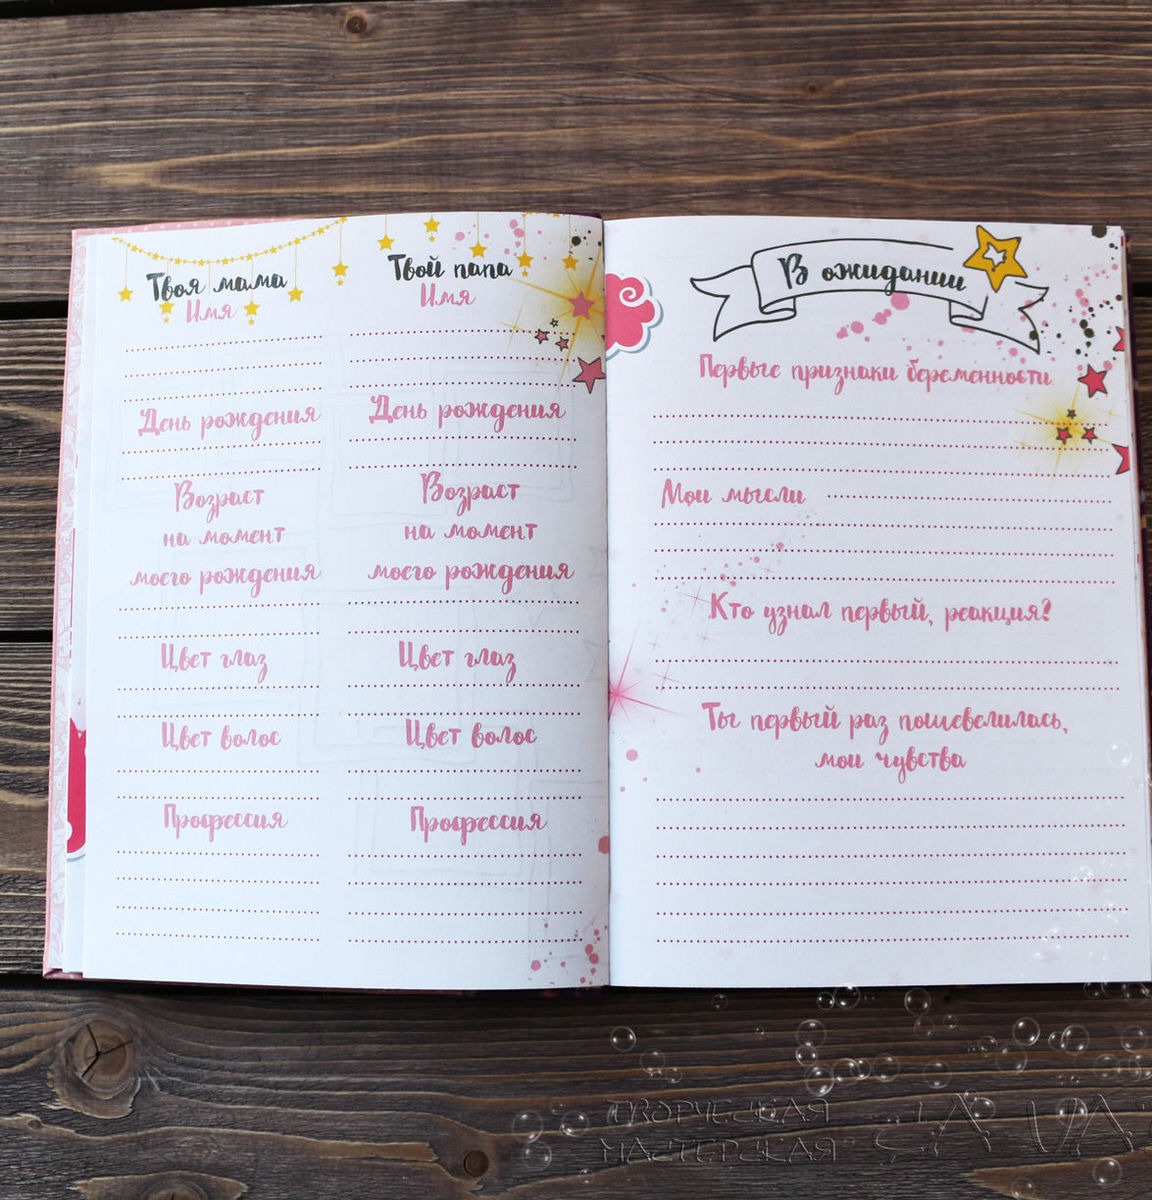 Твоя мама
Имя
День рождения
Возраст
на момент
моего рождения
Цвет глаз
Цвет волос
Профессия
Твой папа
Имя
День рождения
Возраст
на момент
моего рождения
Цвет глаз
Цвет волос
Профессия
В ожидании
Первые признаки беременности
Мои мысли
Кто узнал первый, реакция?
Ты первый раз пошевелилась,
мои чувства
ТВОРЧЕСКАЯ
МАСТЕРСКАЯ